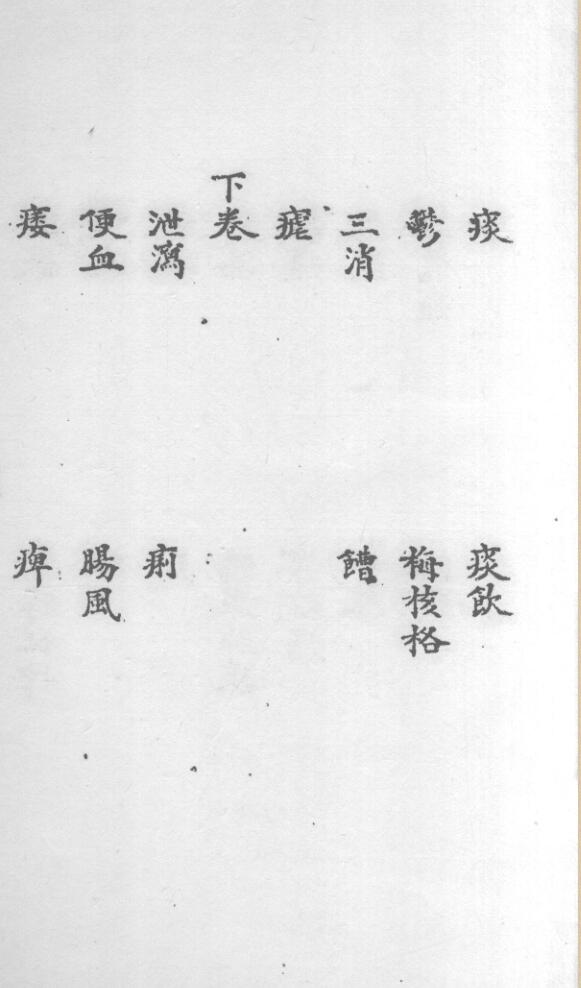 痰　痰飲
鬱　梅核格
三消　䭚
瘧
下卷
泄瀉　痢
便血　腸風
痿　痺